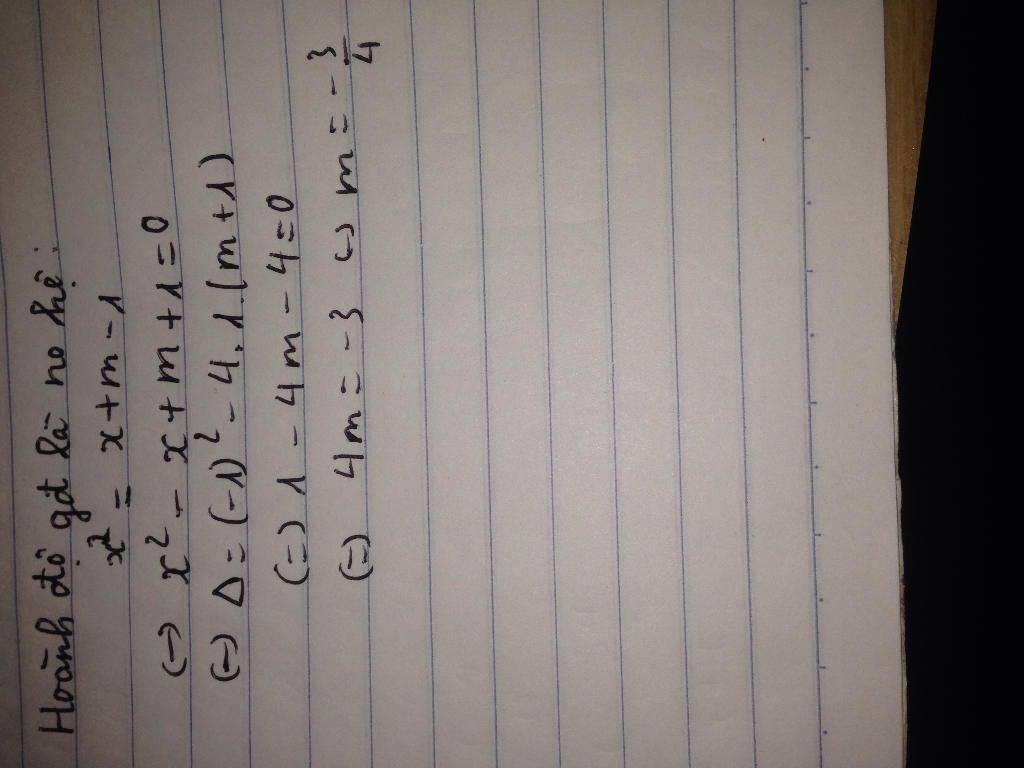 Hoành độ gđ là no hệ:
x² = x + m - 1
(=) x² - x + m + 1 = 0
(=) Δ = (-1)² - 4.1.(m+1)
(=) 1 - 4m - 4 = 0
(=) 4m = -3 (=) m = -3/4